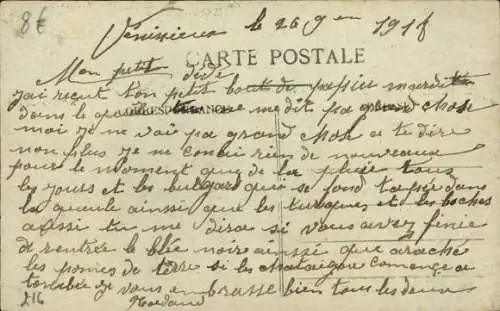 8€
Venissieux le 26 9bre 1915
CARTE POSTALE
Mon petit dédé
j'ai reçut ton petit bout de papier
dans le quel tu me dit pa grand chose
CORRESPONDANCE
moi je ne vai pa grand chose a te dire
non plus je ne conai rien de nouveaux
pour le moment que de la pluie tous
les jours et les bulgare qui se fond taper dans
la gueule ainsi que les turques et les boches
aussi tu me dira si vous avez finie
de rentrée le blé noir ainsi que araché
les pomes de terre si les chataigne comence a
tombée je vous embrasse bien tous les deux
216